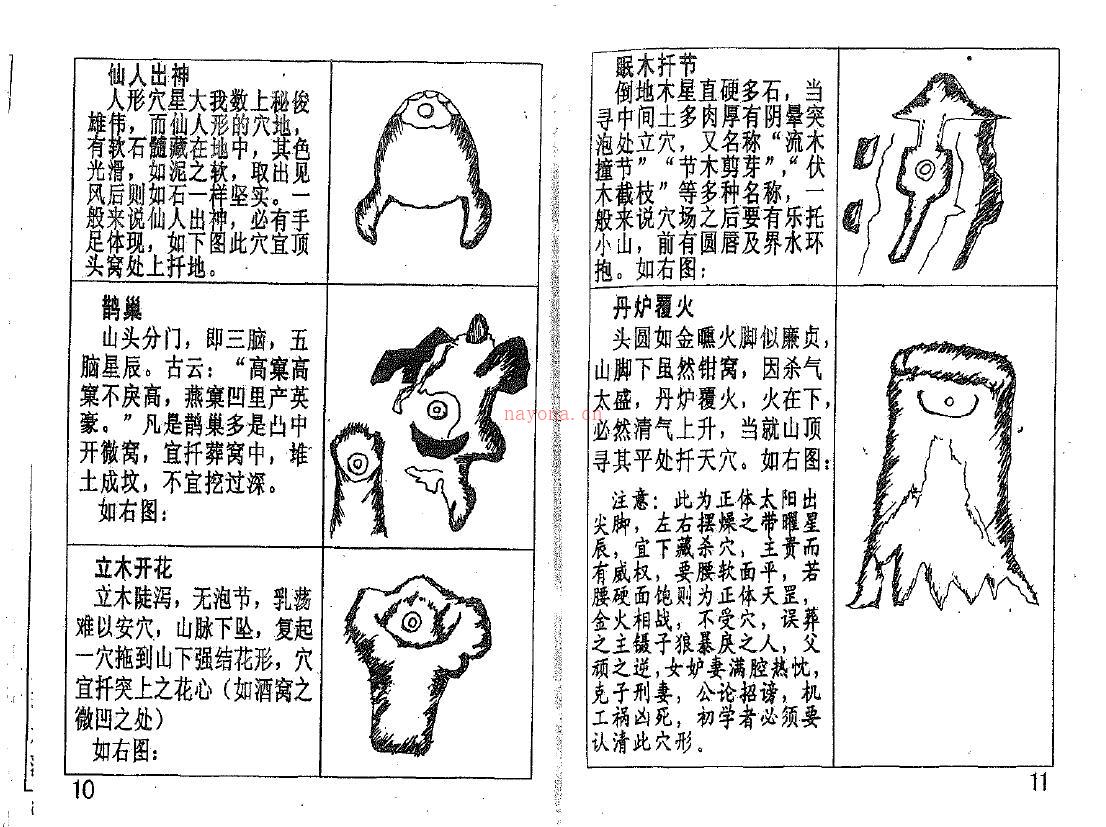 仙人出神
人形穴星大我数上秘俊
雄伟，而仙人形的穴地，
有软石髓藏在地中，其色
光滑，如泥之软，取出见
风后则如石一样坚实。一
般来说仙人出神，必有手
足体现，如下图此穴宜顶
头窝处上扦地。
鹊巢
山头分门，即三脑，五
脑星辰。古云：“高窠高
窠不戻高，燕窠凹里产英
豪。”凡是鹊巢多是凸中
开微窝，宜扦葬窝中，堆
土成坟，不宜挖过深。
如右图：
立木开花
立木陡泻，无泡节，乳荡
难以安穴，山脉下坠，复起
一穴拖到山下强结花形，穴
宜扦突上之花心（如酒窝之
微凹之处）
如右图：
10
眠木扦节
倒地木星直硬多石，当
寻中间土多肉厚有阴晕突
泡处立穴，又名称“流木
撞节”“节木剪芽”，“伏
木截枝”等多种名称，一
般来说穴场之后要有乐托
小山，前有圆唇及界水环
抱。如右图：
丹炉覆火
头圆如金曛火脚似廉贞，
山脚下虽然钳窝，因杀气
太盛，丹炉覆火，火在下，
必然清气上升，当就山顶
寻其平处扦天穴。如右图：
注意：此为正体太阳出
尖脚，左右摆燥之带曜星
辰，宜下藏杀穴，主贵而
有威权，要腰软面平，若
腰硬面饱则为正体天罡，
金火相战，不受穴，误葬
之主镊子狼暴戾之人，父
顽之逆，女妒妻满腔热忱，
克子刑妻，公论招谤，机
工祸凶死，初学者必须要
认清此穴形。
11
nayona.cn